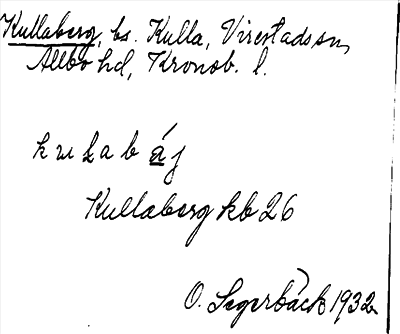 Kullaberg, bs. Kulla, Virestads sn,
Allbo hd, Kronob. l.
Kullaberg kb 26
O. Segerbäck 1932